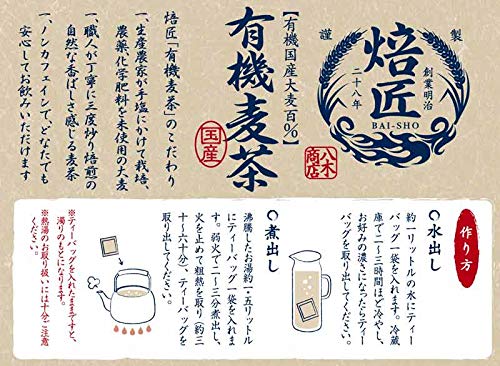 謹製
焙匠
創業明治二十八年
BAI-SHO
八木商店
【有機国産大麦百%】
有機麦茶
国産
焙匠「有機麦茶」のこだわり
一、生産農家が手塩にかけて栽培、
農薬化学肥料を未使用の大麦
一、職人が丁寧に三度炒り焙煎の
自然な香ばしさ感じる麦茶
一、ノンカフェインで、どなたでも
安心してお飲みいただけます
作り方
水出し
約一リットルの水にティー
バッグ一袋を入れます。冷蔵
庫で二〜三時間ほど冷やし、
お好みの濃さになったらティー
バッグを取り出してください。
煮出し
沸騰したお湯約一・五リットル
にティーバッグ一袋を入れま
す。弱火で二〜三分煮出し、
火を止めて粗熱を取り（約三
十〜六十分）、ティーバッグを
取り出してください。
※ティーバッグを入れたままですと、
濁りのもとになります。
※熱湯のお取り扱いには十分ご注意
ください。